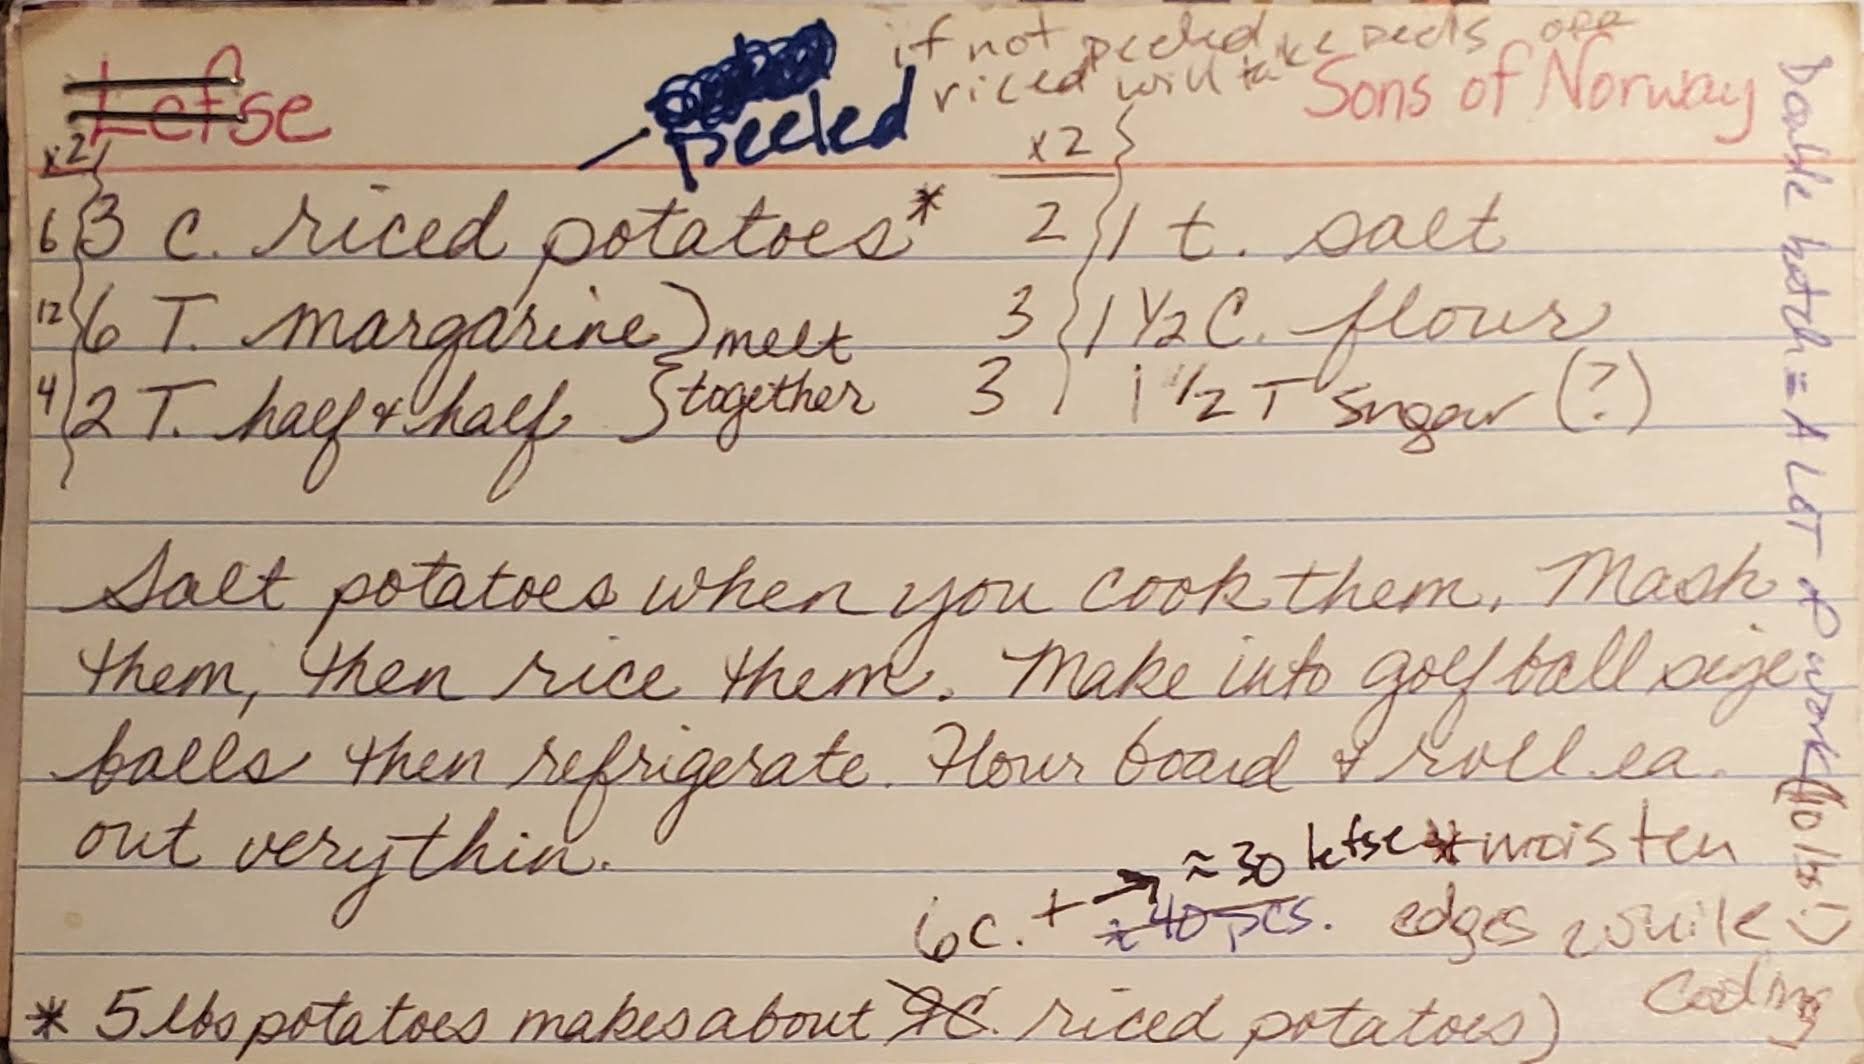 if not peeled
riced will take peels off
Lefse
peeled
Sons of Norway
x2
x2
6 3 c. riced potatoes*
2 1 t. salt
12 6 T. margarine) melt
3 1 1/2 C. flour
4 2 T. half & half together
3 1 1/2 T sugar (?)
Salt potatoes when you cook them. Mash
them, then rice them. Make into golf ball size
balls then refrigerate. Flour board & roll ea.
out very thin.
≈30 lefse
* moisten
6c. + → ≈40 pcs.
edges while
cooling
* 5 lbs potatoes makes about 9C. riced potatoes)
Double batch = A LOT of work (10 lbs) :)